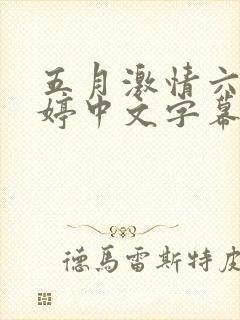 五月激情六
婷中文字幕
德馬雷斯特皮